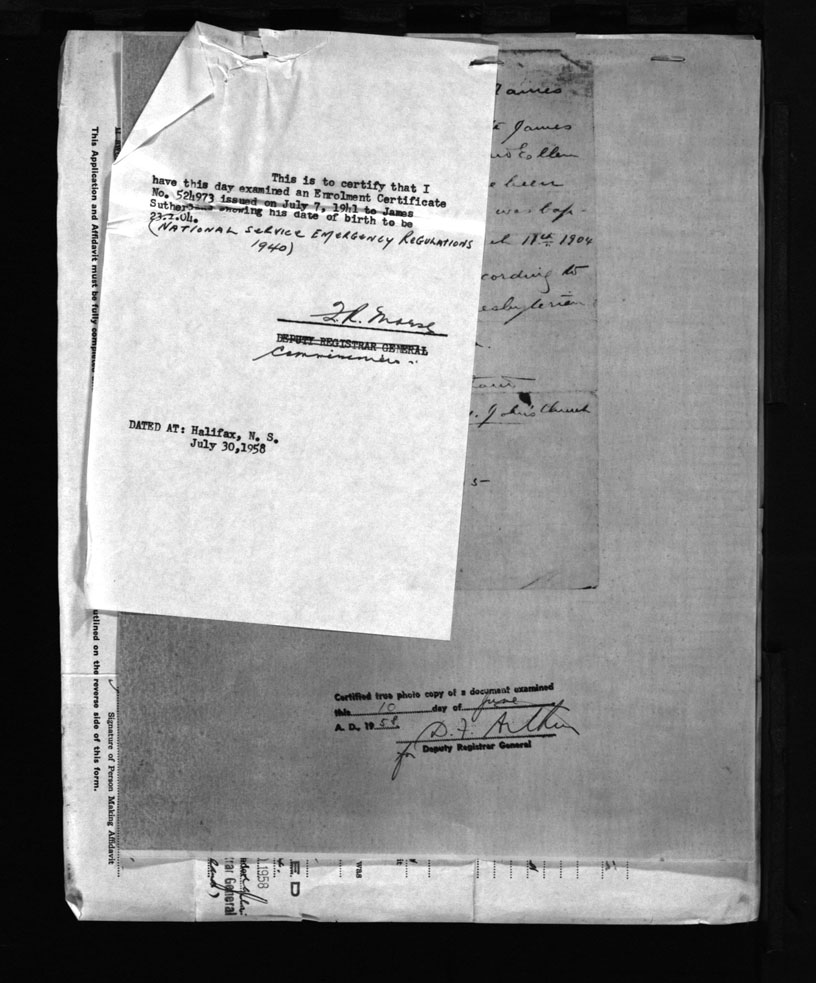 This is to certify that I
have this day examined an Enrolment Certificate
No. 524973 issued on July 7, 1941 to James
showing his date of birth to be
(NATIONAL SERVICE EMERGENCY REGULATIONS
1940)
DEPUTY REGISTRAR GENERAL
DATED AT: Halifax, N. S.
July 30, 1958
James
James
Ellen
been
was bap-
18th 1904
cording to
esbyterian
John's Church
5-
Certified true photo copy of a document examined
this 10 day of June
A. D., 19 58
D. F.
for Deputy Registrar General
This Application and Affidavit must be fully
utlined on the reverse side of this form.
Signature of Person Making Affidavit
was
it
ED
1958
rar General